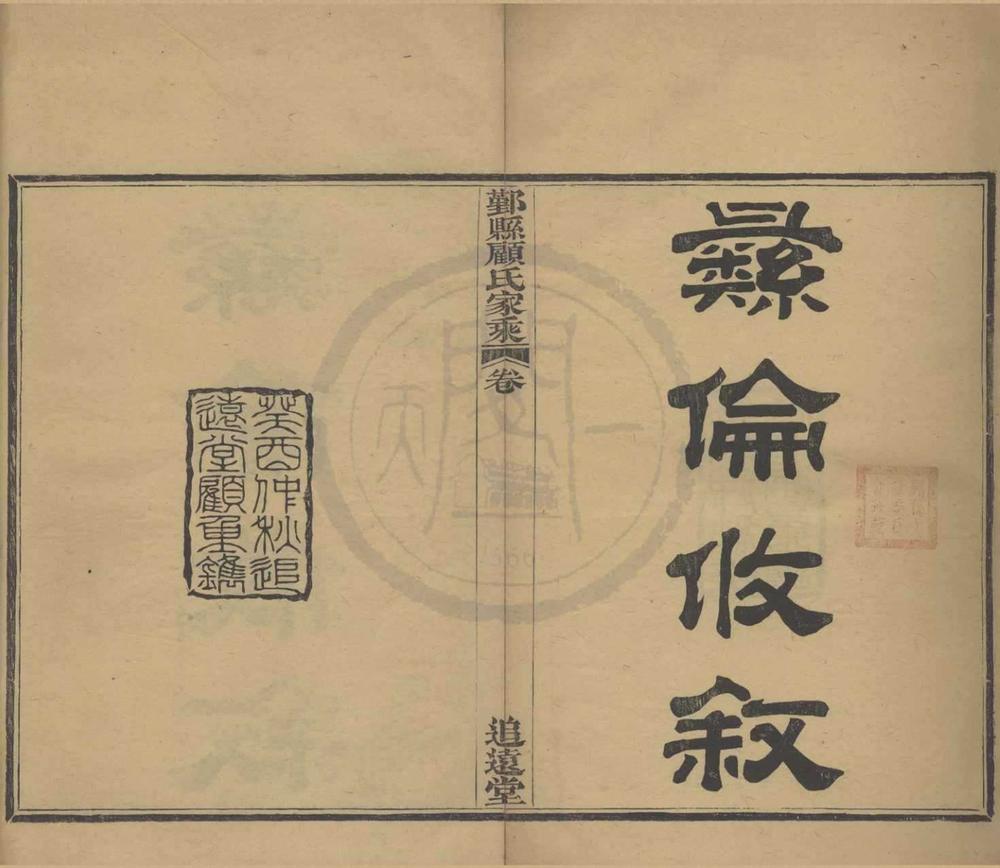 彝倫攸敘
鄞縣顧氏家乘 卷
追遠堂
癸酉仲秋追
遠堂顧重鐫